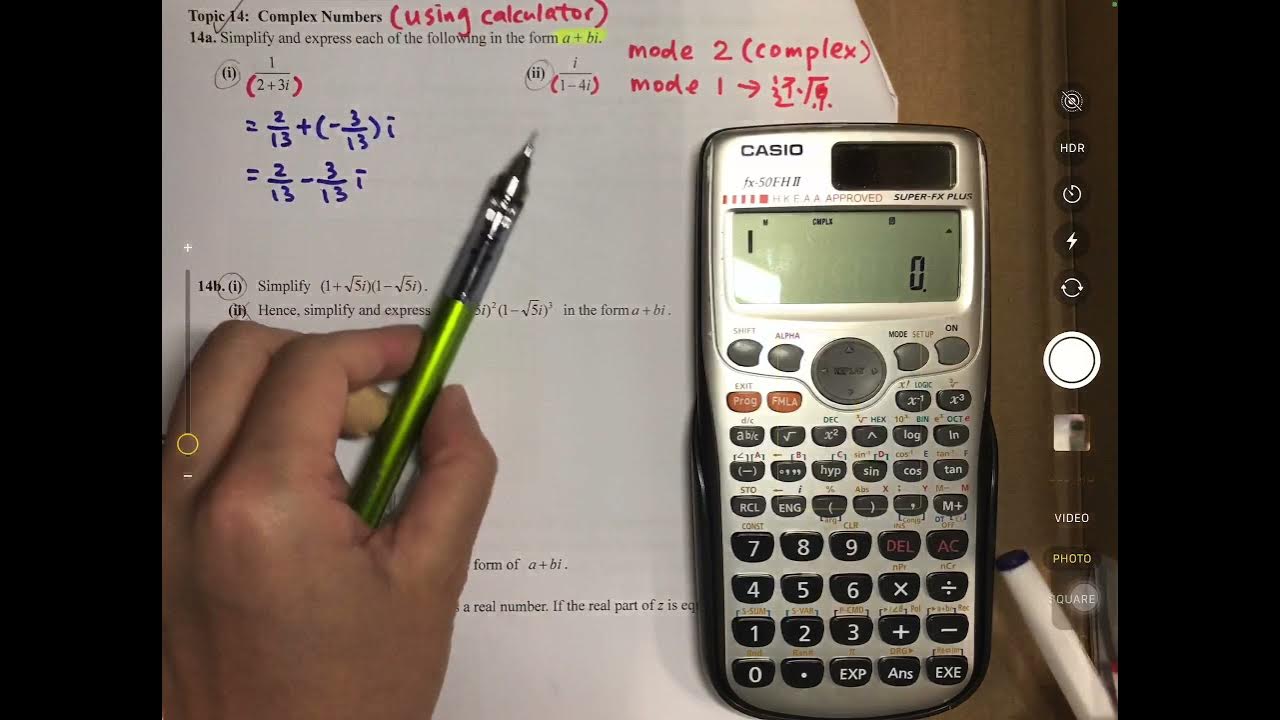 Topic 14: Complex Numbers (using calculator)
14a. Simplify and express each of the following in the form a + bi.
mode 2 (complex)
(i) 1/(2+3i)
(ii) i/(1−4i)
mode 1 →
= 2/13 + (−3/13) i
= 2/13 − 3/13 i
14b. (i) Simplify (1+√5i)(1−√5i).
(ii) Hence, simplify and express 5i)²(1−√5i)³ in the form a + bi.
form of a + bi.
s a real number. If the real part of z is equ
CASIO
fx-50FH II
H.K.E.A.A. APPROVED SUPER-FX PLUS
M CMPLX D
1
0.
SHIFT ALPHA MODE SETUP ON
REPLAY
EXIT x! LOGIC ³√
Prog FMLA x⁻¹ x³
d/c DEC ˣ√ HEX 10ˣ BIN eˣ OCT e
ab/c √ x² ^ log ln
[∠] [A] ← [B] [C] sin⁻¹ [D] cos⁻¹ E tan⁻¹ F
(−) °,,, hyp sin cos tan
STO ← i % Abs X ; Y M− M
RCL ENG ( ) , M+
CONST [arg] CLR INS [Conjg] OFF
7 8 9 DEL AC
nPr nCr
4 5 6 × ÷
S-SUM S-VAR P-CMD ▸r∠θ Pol ▸a+bi Rec
1 2 3 + −
Rnd Ran# π DRG▸ [Re⇔Im]
0 . EXP Ans EXE
HDR
VIDEO
PHOTO
SQUARE